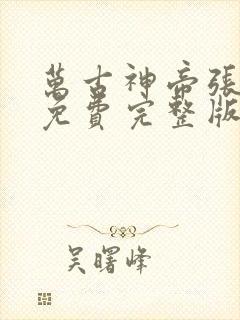 萬古神帝張
免費完整版
吴曙峰